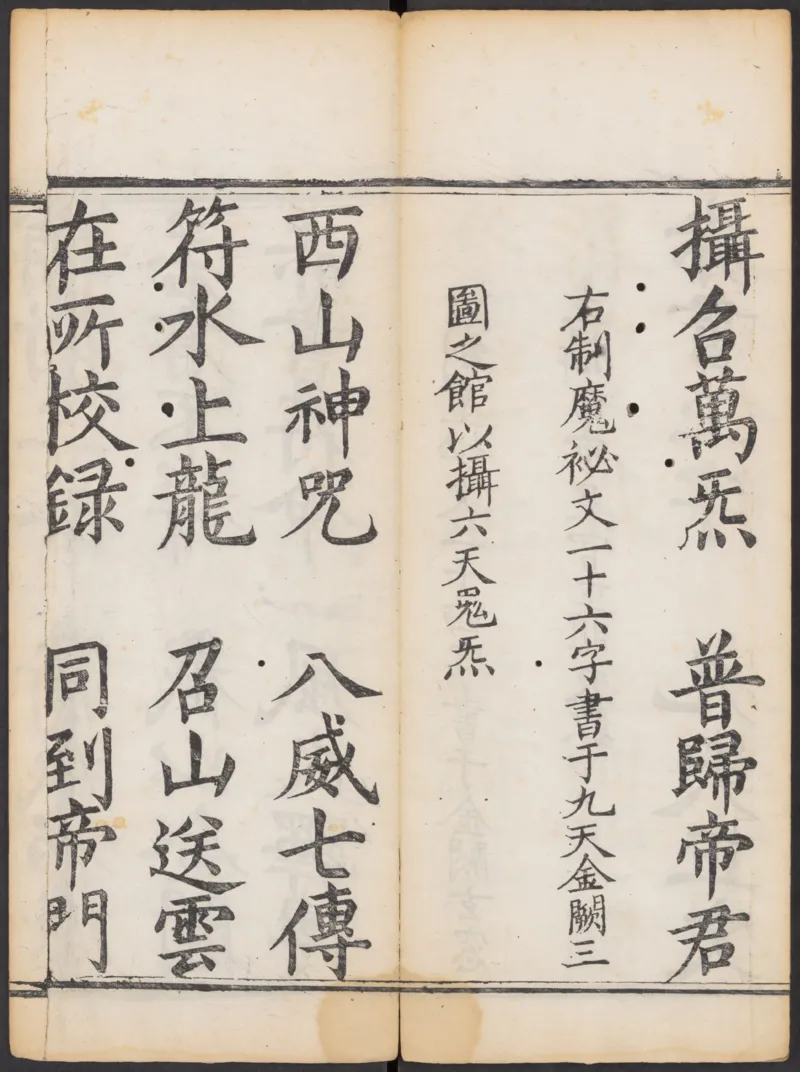 攝召萬炁　普歸帝君
右制魔祕文一十六字書于九天金闕三
圖之館以攝六天䰟炁
西山神咒　八威七傳
符水上龍　召山送雲
在所校録　同到帝門